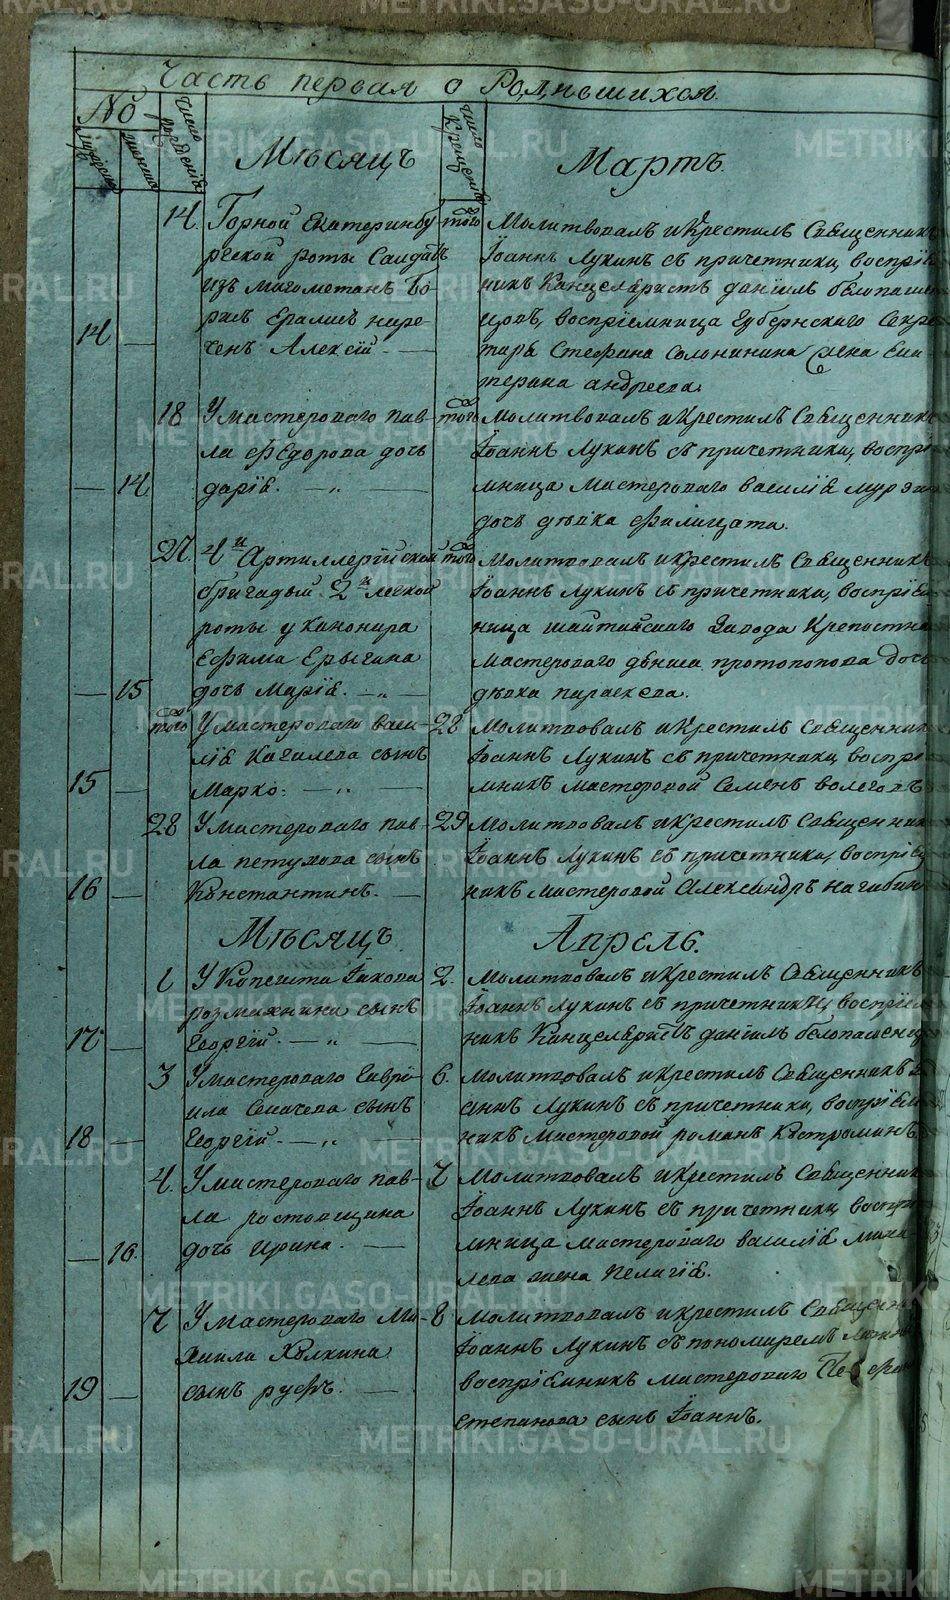 Часть первая о Родившихся.
№
Число рождения
Месяцъ
Число Крещения
Мартъ.
14. Горной Екатеринбу-
ргской роты Салдатъ
изъ магометанъ Бо-
рисъ наре-
14 — ченъ Алексiй. —
того Молитвовалъ и крестилъ Священникъ
Iоаннъ Лукинъ съ причетники, воспрiем
никъ Канцеляристъ данiилъ белопашен
цовъ, воспрiемница Губернскаго Секре
таря Стефана Солонинина жена Ека
терина андреева.
18 У мастероваго пав-
ла Федорова дочь
— 14 дарiя. — „ —
того Молитвовалъ и крестилъ Священникъ
Iоаннъ Лукинъ съ причетники, воспрiе
мница мастероваго василiя
дочь девка филицата.
27. 4й Артиллерiйской
бригады 2й легкой
роты у канонира
Ефима Ерыгина
— 15 дочь Марiя. — „ —
того Молитвовалъ и крестилъ Священникъ
Iоаннъ Лукинъ съ причетники, воспрiем
ница шайтанскаго завода крепостна
мастероваго дениса протопопова дочь
девка параскева.
того У мастероваго васи-
лiя Качалева сынъ
15 — Марко. — „ —
28 Молитвовалъ и крестилъ Священник
Iоаннъ Лукинъ съ причетники воспрiе
мникъ мастеровой Семенъ волеговъ
28 У мастероваго пав-
ла петухова сынъ
16 — Константинъ. —
29 Молитвовалъ и крестилъ Священник
Iоаннъ Лукинъ съ причетники, воспрiем
никъ мастеровой Александръ нагибин
Месяцъ
Апрель.
1 У Копеиста Iакова
размахнина сынъ
17 — Георгiй. — „ —
2. Молитвовалъ и крестилъ Священникъ
Iоаннъ Лукинъ съ причетники, воспрiем
никъ Канцеляристъ данiилъ белопашенцо
3 У мастероваго Гаврi-
ила Сыначева сынъ
18 — Георгiй. — „ —
6. Молитвовалъ и крестилъ Священникъ Iо
аннъ Лукинъ съ причетники, воспрiем
никъ мастеровой романъ Костроминъ
4. У мастероваго пав-
ла ростовщина
— 16. дочь ирина. —
7 Молитвовалъ и крестилъ Священник
Iоаннъ Лукинъ съ причетники воспрiе
мница мастероваго василiя
лева жена Пелагiя.
7 У мастероваго Ми-
хаила Колкина
19 — сынъ руфъ. —
8 Молитвовалъ и крестилъ Священник
Iоаннъ Лукинъ съ пономаремъ
воспрiемникъ мастероваго
степанова сынъ Iоаннъ.
METRIKI.GASO-URAL.RU